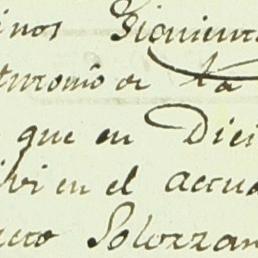 inos Siguient
Antonio de la
que en Dici
ivi en el actua
reto Solorzan